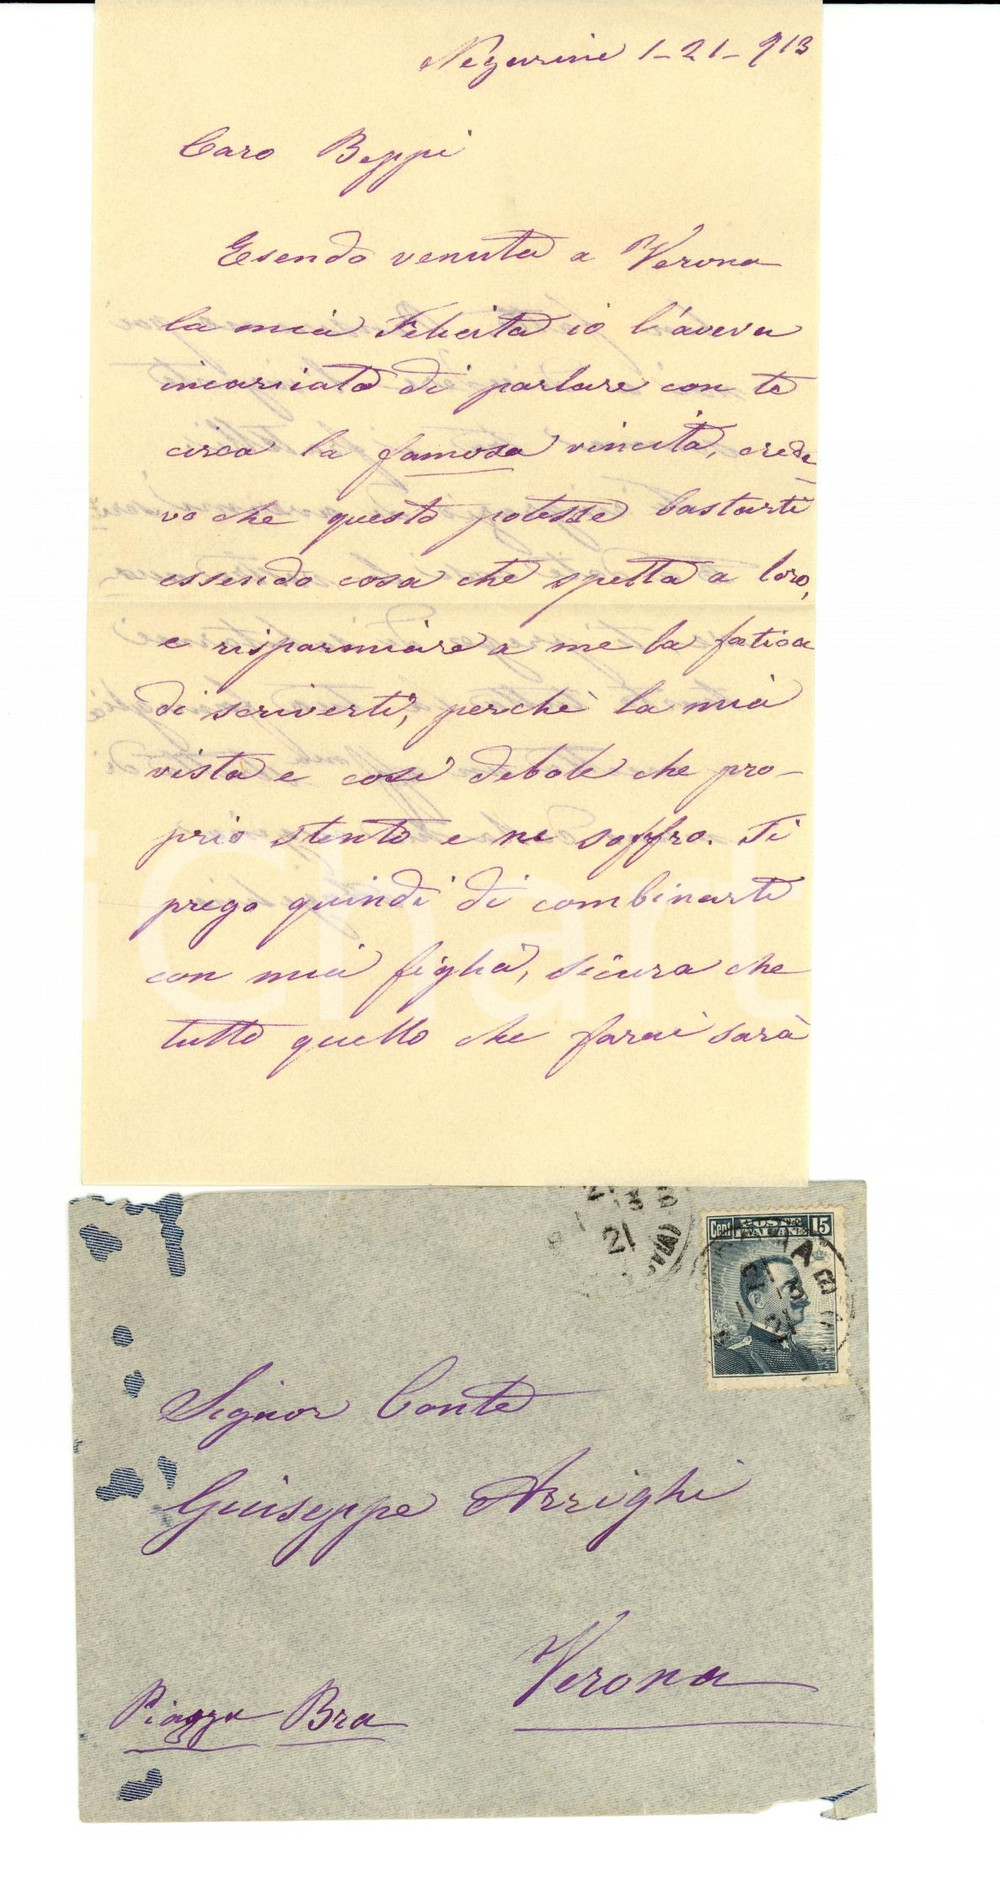 Negarine 1-21-913
Caro Beppi
Esendo venuta a Verona
la mia Felicita io l'aveva
incaricata di parlare con te
circa la famosa vincita, crede-
vo che questo potesse bastarti
essendo cosa che spetta a loro,
e risparmiare a me la fatica
di scriverti, perchè la mia
vista e così debole che pro-
prio stento e ne soffro. Ti
prego quindi di combinarti
con mia figlia, sicura che
tutto quello che farai sarà
Cent POSTE ITALIANE 15
21
13
21
Signor Conte
Giuseppe Arrighi
Verona
Piazza Bra
iCharta